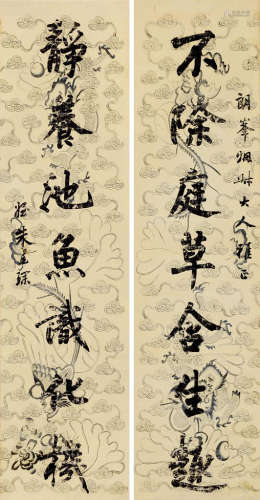 不除庭草含生趣
朗峯姻
大人雅正
靜養池魚識化機
朱